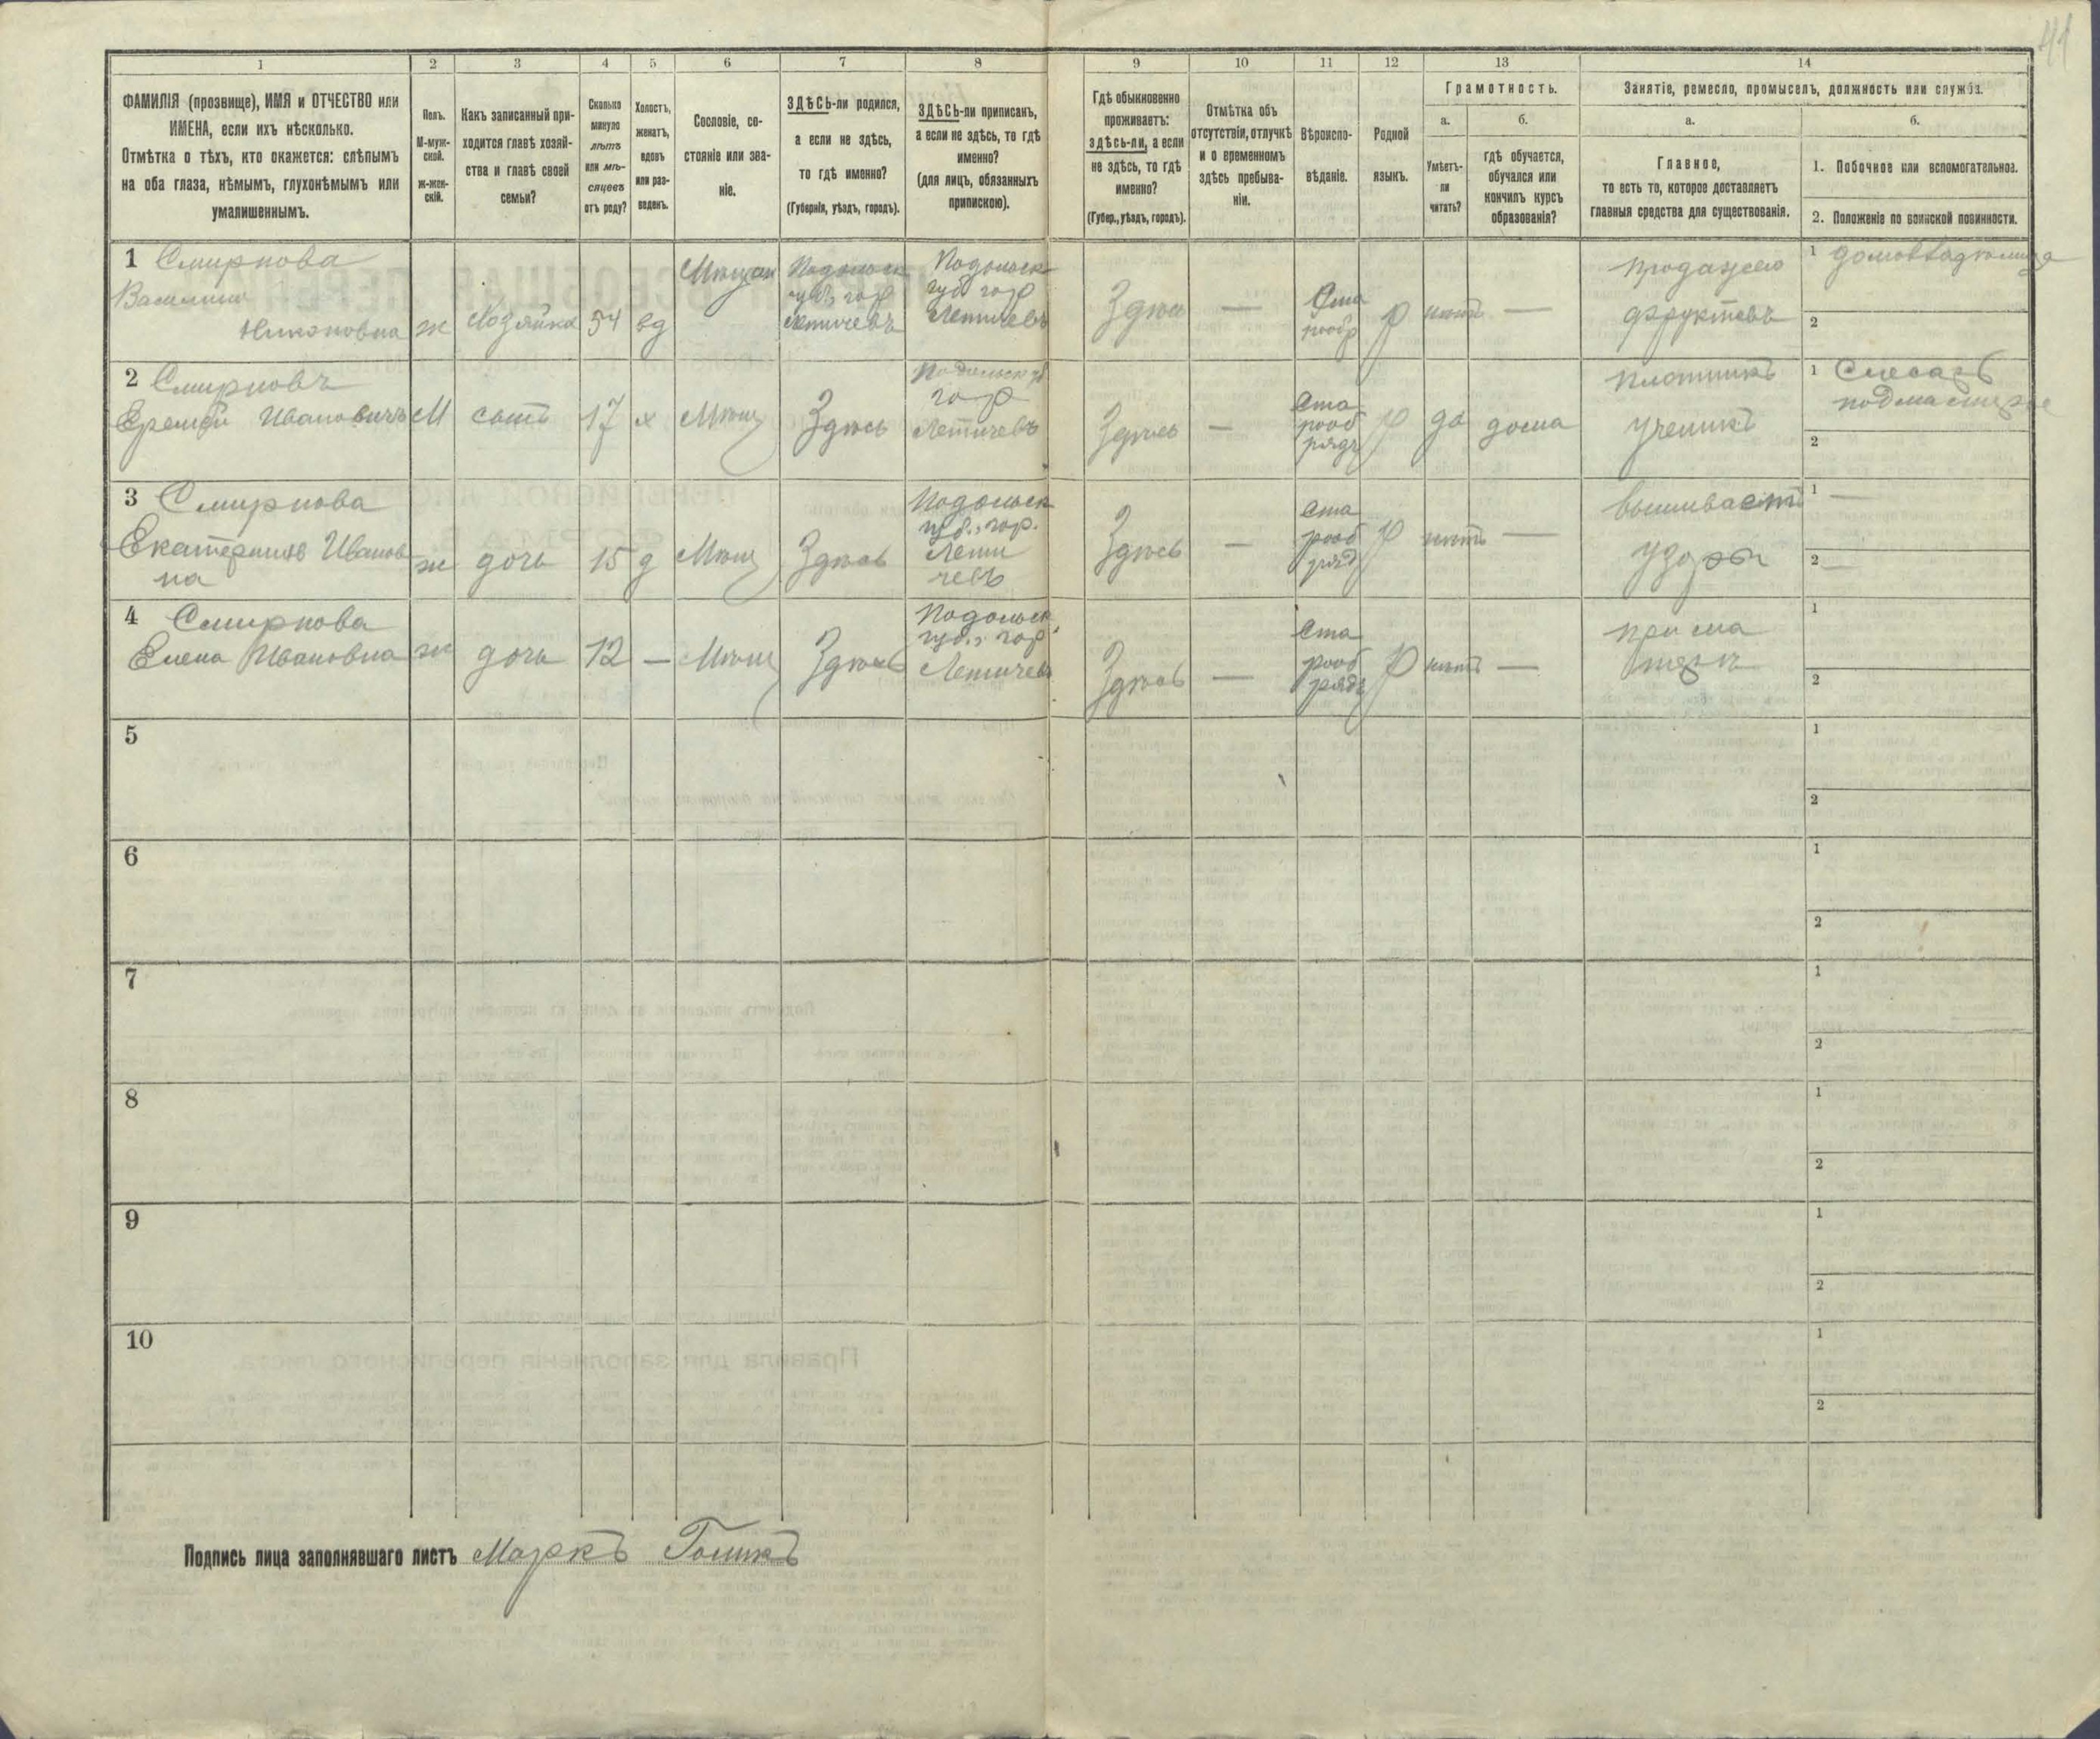 41
1 2 3 4 5 6 7 8 9 10 11 12 13 14
ФАМИЛІЯ (прозвище), ИМЯ и ОТЧЕСТВО или
ИМЕНА, если ихъ нѣсколько.
Отмѣтка о тѣхъ, кто окажется: слѣпымъ
на оба глаза, нѣмымъ, глухонѣмымъ или
умалишеннымъ.
Полъ.
М-муж-
ской.
ж-жен-
скій.
Какъ записанный при-
ходится главѣ хозяй-
ства и главѣ своей
семьи?
Сколько
минуло
лѣтъ
или мѣ-
сяцевъ
отъ роду?
Холостъ,
женатъ,
вдовъ
или раз-
веденъ.
Сословіе, со-
стояніе или зва-
ніе.
ЗДѢСЬ-ли родился,
а если не здѣсь,
то гдѣ именно?
(Губернія, уѣздъ, городъ).
ЗДѢСЬ-ли приписанъ,
а если не здѣсь, то гдѣ
именно?
(для лицъ, обязанныхъ
припискою).
Гдѣ обыкновенно
проживаетъ:
здѣсь-ли, а если
не здѣсь, то гдѣ
именно?
(Губер., уѣздъ, городъ).
Отмѣтка объ
отсутствіи, отлучкѣ
и о временномъ
здѣсь пребыва-
ніи.
Вѣроиспо-
вѣданіе.
Родной
языкъ.
Грамотность.
а.
Умѣетъ-
ли
читать?
б.
гдѣ обучается,
обучался или
кончилъ курсъ
образованія?
Занятіе, ремесло, промыселъ, должность или служба.
а.
Главное,
то есть то, которое доставляетъ
главныя средства для существованія.
б.
1. Побочное или вспомогательное.
2. Положеніе по воинской повинности.
1 Смирнова
Никоновна
ж
Хозяйка
54
вд
Мѣщан
Подольск
губ., гор
Летичевъ
Подольск
губ гор
Летичевъ
Здѣсь
—
Ста
рообр
р
нѣтъ
—
продажею
фруктовъ
1 домовладѣлица
2
2 Смирновъ
Еремей Ивановичъ
М
сынъ
17
х
Мѣщ
Здѣсь
Подольск гб
гор
Летичевъ
Здѣсь
—
Ста
рооб
рядч
р
да
дома
плотникъ
ученикъ
1 Слесарь
подмастерье
2
3 Смирнова
Екатерина Иванов
на
ж
дочь
15
д
Мѣщ
Здѣсь
Подольск
губ., гор.
Лети
чевъ
Здѣсь
—
Ста
рооб
ряд
р
нѣтъ
—
вышиваетъ
узоры
1 —
2 —
4 Смирнова
Елена Ивановна
ж
дочь
12
—
Мѣщ
Здѣсь
Подольск
губ., гор
Летичевъ
Здѣсь
—
Ста
рооб
рядч
р
нѣтъ
—
при ма
тери
1
2
5
1
2
6
1
2
7
1
2
8
1
2
9
1
2
10
1
2
Подпись лица заполнявшаго листъ Маркъ